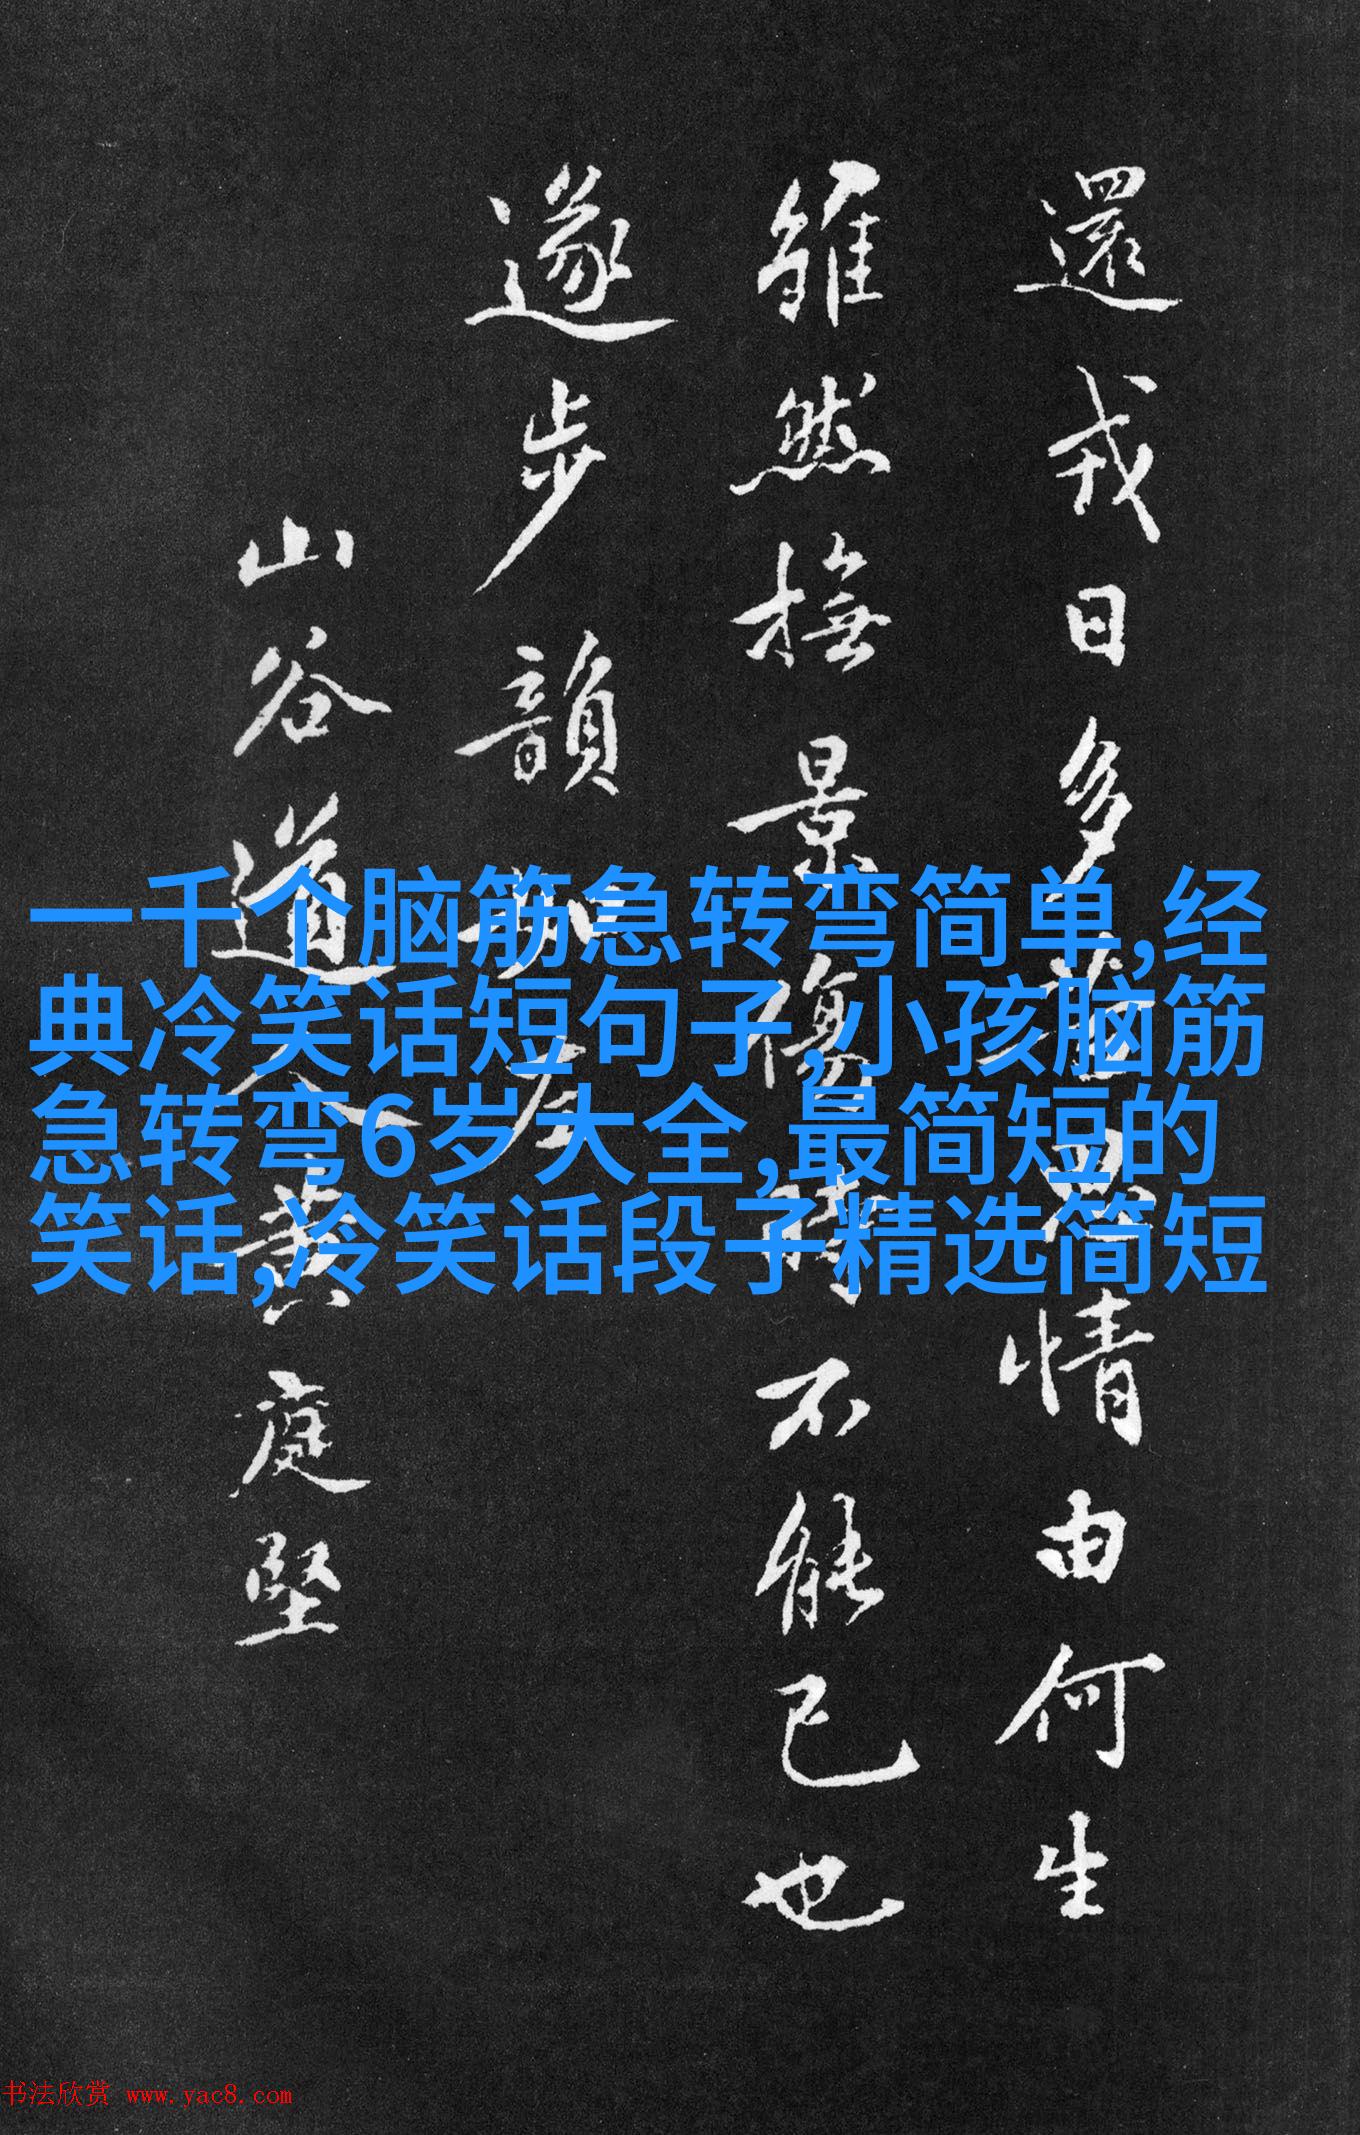 還戎日多
情由何生
雖然撫景傷
不能已也
遂步韻
山谷道人黃庭堅
一千个脑筋急转弯简单,经
典冷笑话短句子,小孩脑筋
急转弯6岁大全,最简短的
笑话,冷笑话段子精选简短
书法欣赏 www.yac8.com